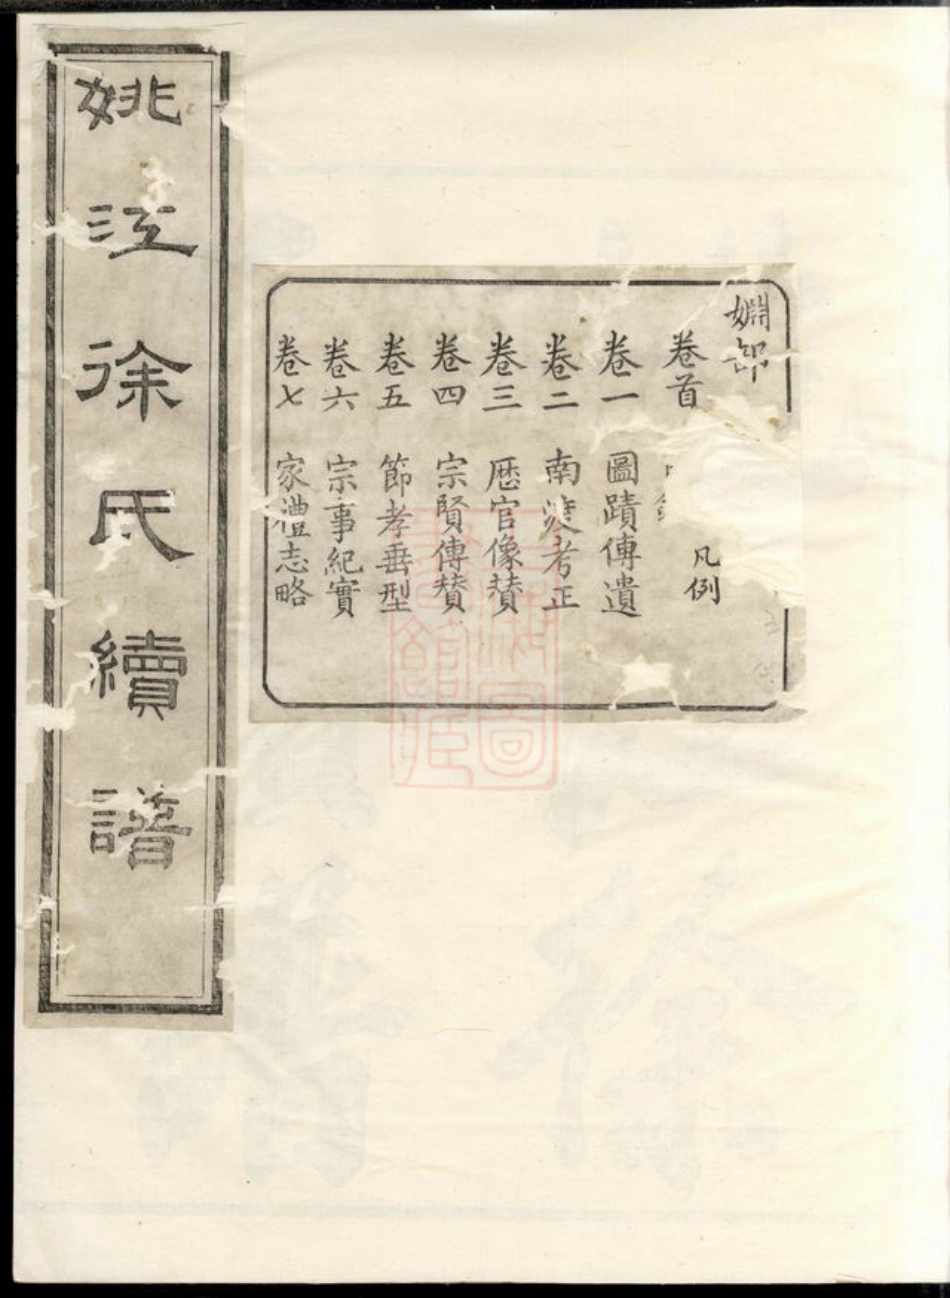 姚江徐氏續譜
卷首
凡例
卷一 圖蹟傳遺
卷二 南渡考正
卷三 歷官像賛
卷四 宗賢傳賛
卷五 節孝垂型
卷六 宗事紀實
卷七 家禮志略